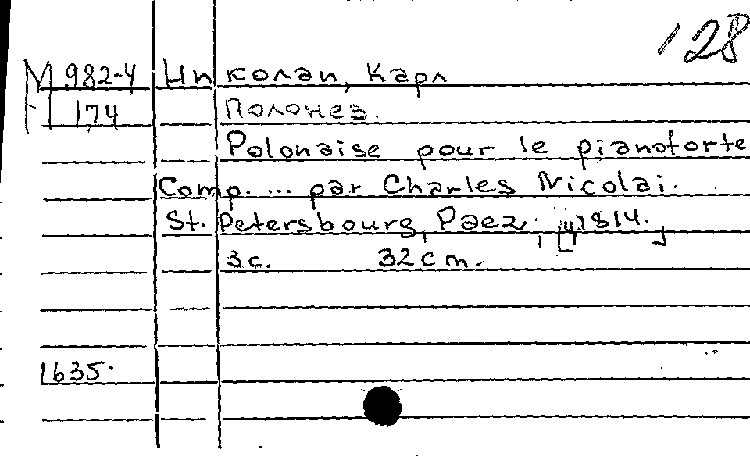 128
М 982-4 Николаи, Карл
174 Полонез.
Polonaise pour le pianoforte
Comp. ... par Charles Nicolai.
St. Petersbourg, Paez, [1814.]
3с. 32cm.
1635.